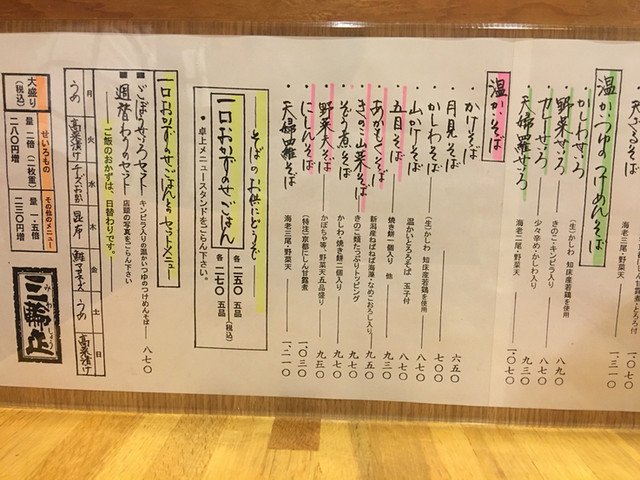 天ぷらそば
一、〇七〇
一、三一〇
温かいつゆのつけめんそば
かしわせいろ
(生)かしわ 知床産若鶏を使用
八九〇
野菜せいろ
きのこ・キンピラ入り
八七〇
カレーせいろ
少々辛め・かしわ入り
九三〇
天婦羅せいろ
海老二尾・野菜天
一、〇七〇
温かいそば
かけそば
六五〇
月見そば
七〇〇
かしわそば
(生)かしわ 知床産若鶏を使用
八七〇
山かけそば
温かいとろろそば 玉子付
八七〇
五目そば
焼き餅一個入り 他
九三〇
あかもくそば
新潟産ねばねば海藻・なめこおろし入り
九五〇
きのこ山菜そば
きのこ類たっぷりトッピング
九七〇
ぞう煮そば
かしわ・焼き餅二個入り
九七〇
野菜天そば
かぼちゃ等、野菜天五品盛り
九五〇
にしんそば
(特注)京都にしん甘露煮
一、〇三〇
天婦羅そば
海老三尾・野菜天
一、二一〇
そばのお供にどうぞ
一口おかずのせごはん
各 二五〇 五品
各 二七〇 五品
(税込)
卓上メニュースタンドをごらん下さい。
一口おかずのせごはんとのセットメニュー
ごぼうせいろセット
キンピラ入りの温かいつゆのつけめんそば
八七〇
週替わりのセット
店頭の写真をごらん下さい
ご飯のおかずは、日替わりです。
月 火 水 木 金 土 日
うめ
高菜漬け
チーズおかか
昆布
うめ
高菜漬け
大盛り
(税込)
せいろもの
量 二倍(二枚重)
二八〇円増
その他のメニュー
量 一・五倍
二三〇円増
三輪正